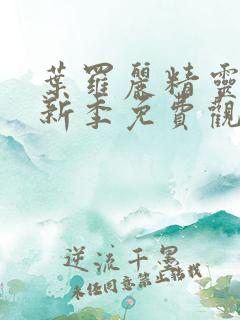 葉羅麗精靈
新季免費觀
逆流千黑
未经同意禁止搭载